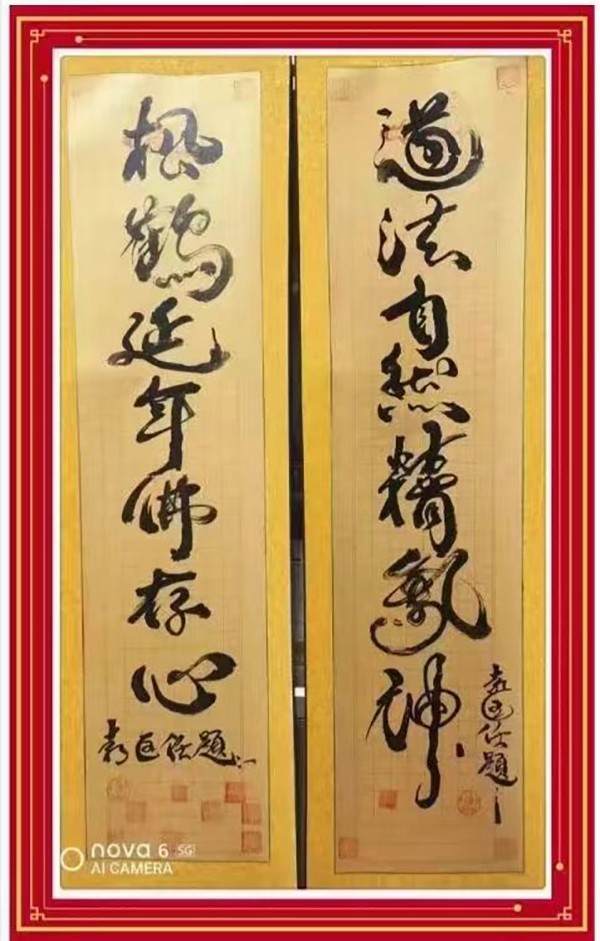 道法自然精氣神
松鶴延年佛存心
nova 6 5G
AI CAMERA